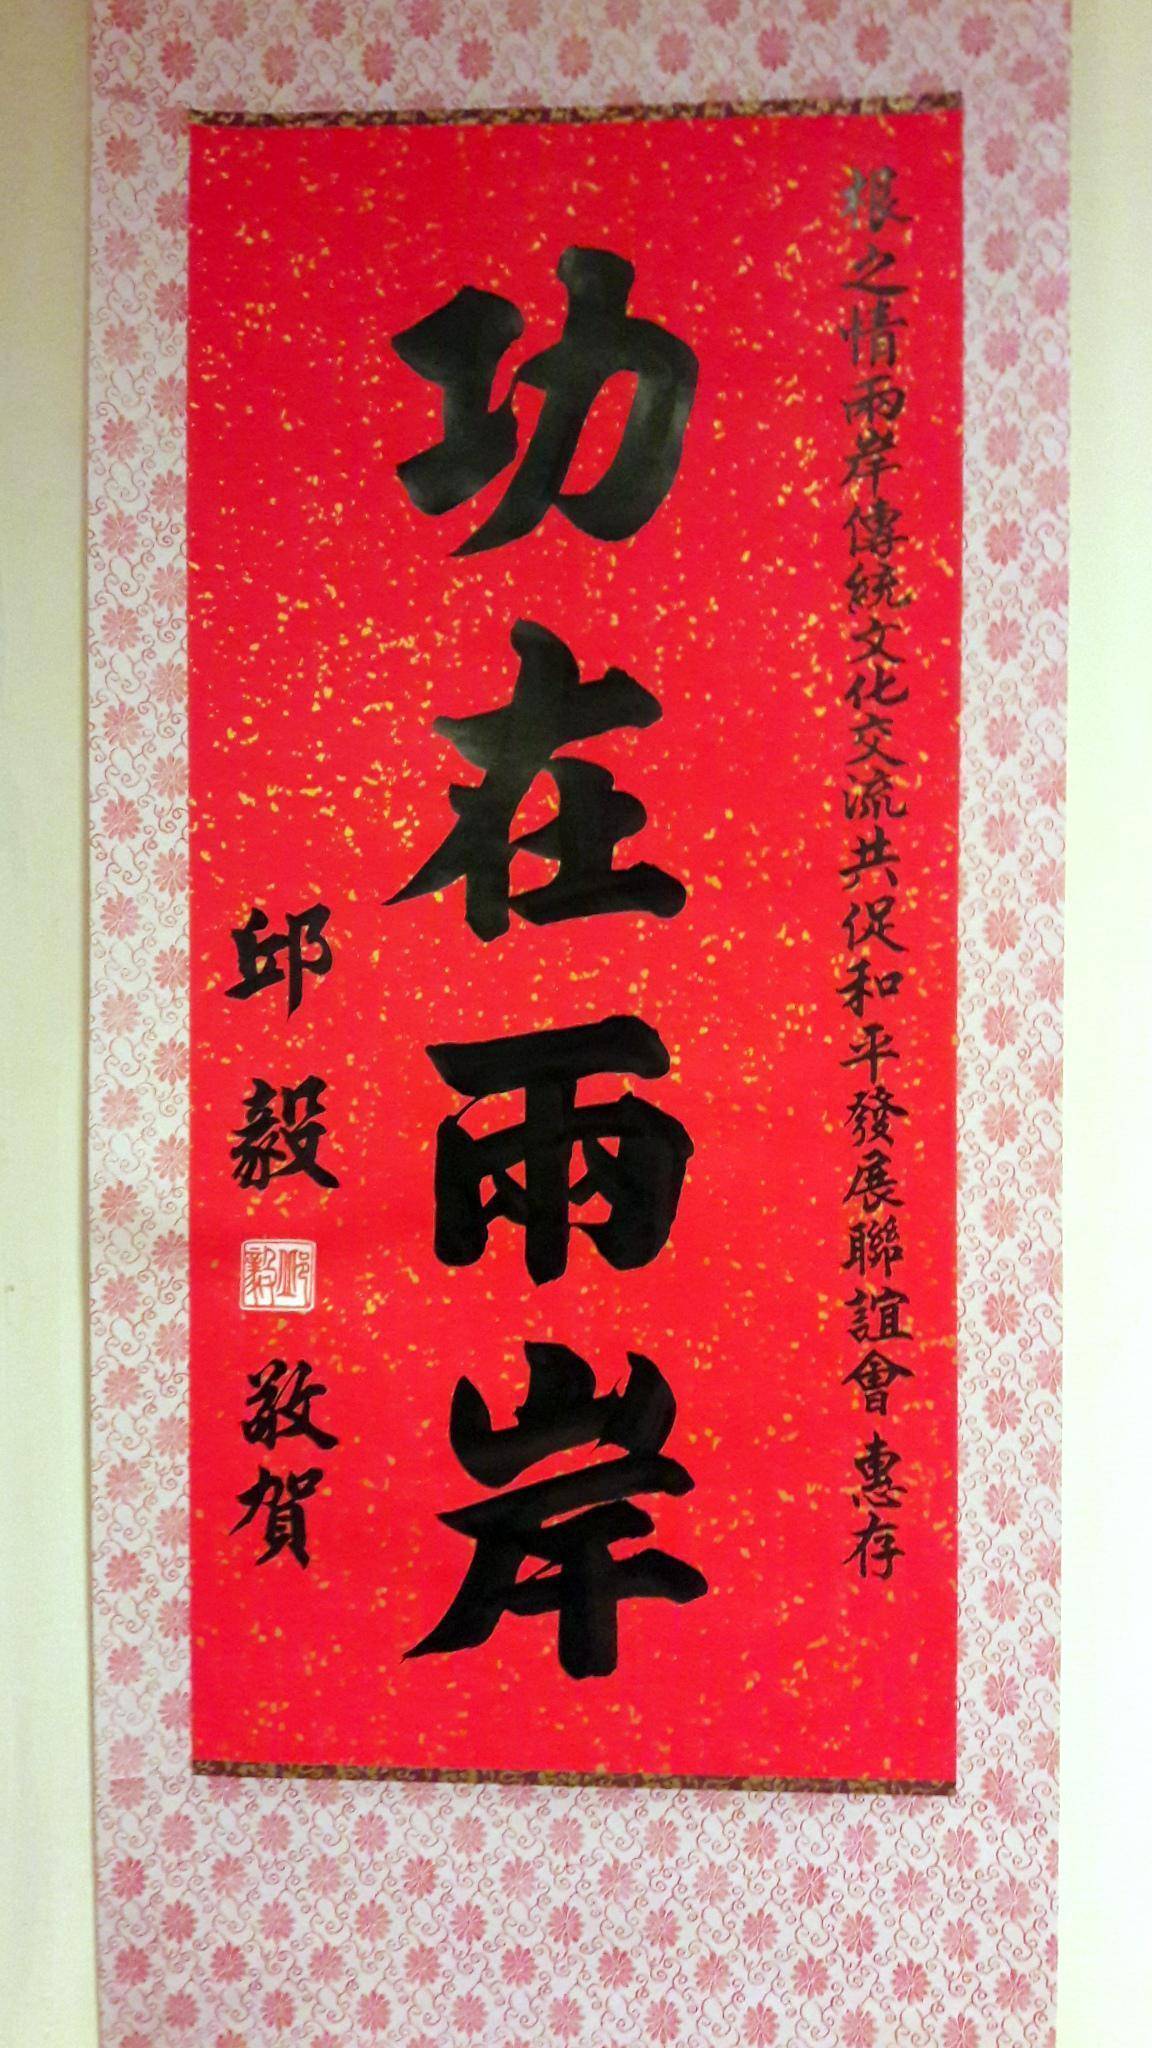 根之情兩岸傳統文化交流共促和平發展聯誼會 惠存
功在兩岸
邱毅 敬賀
邱毅